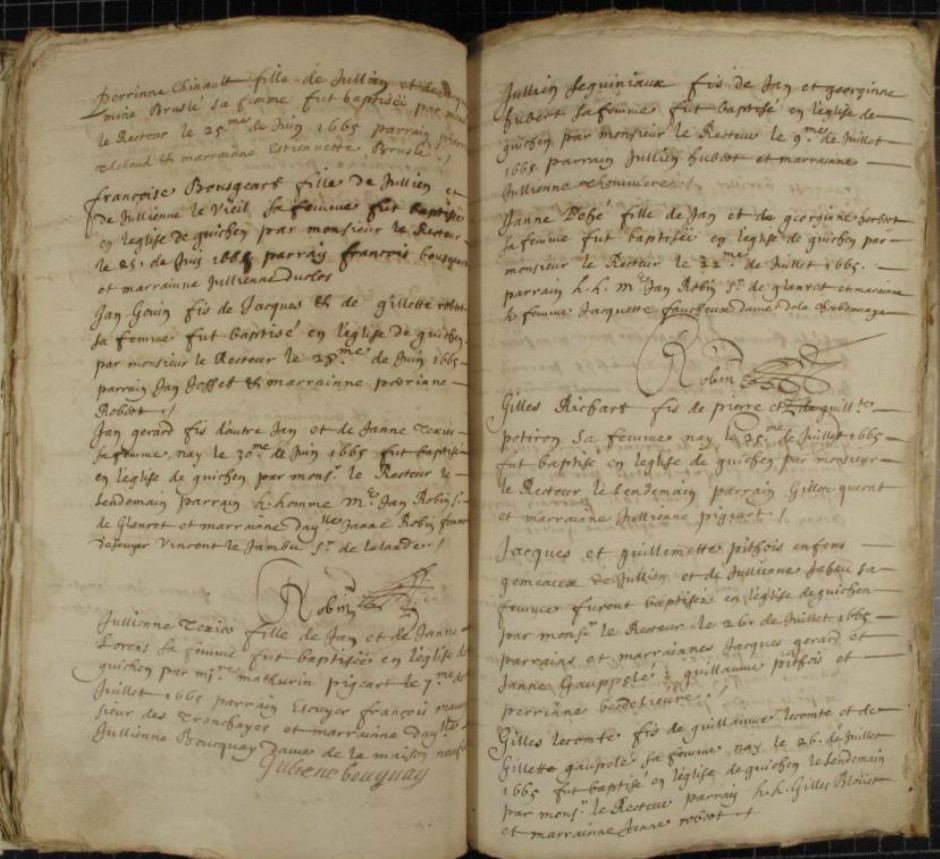 perrinne Chinault fille de Jullien et de
mine Bruslé sa femme fut baptisée par
le Recteur le 25.me de Juin 1665 parrain pierre
Thebaud & marrainne Estiennette Bruslé ./
françoise Bousgeart fille de Jullien et
de Jullienne le Vieil sa femme fut baptisée
en l'eglise de guichen par monsieur le Recteur
le 25. de Juin 1665 parrain françois
et marrainne Jullienne duclos
Jan Gouin fis de Jacques & de gillette robert
sa femme fut baptisé en l'eglise de guichen
par monsieur le Recteur le 28.me de Juin 1665
parrain Jan Josset & marrainne perrinne
Robert ./
Jan gerard fis d'autre Jan et de Janne Texier
sa femme, nay le 30.me de Juin 1665 fut baptisé
en l'eglise de guichen par monsr. le Recteur le
lendemain parrain h. homme Me Jan Robin Sr.
de Glanrot et marrainne daylle Janne Robin femme
descuyer Vincent le Jambu Sr. de lalande ./
Robin
Jullienne Texier fille de Jan et de Janne
Lorens sa femme fut baptisée en l'eglise de
guichen par mre. mathurin pigeart le 7.me de
Juillet 1665 parrain Escuyer françois
sieur des Tronchayes et marrainne daylle
Jullienne Bousquay Dame de la maison neufve
Juliene bouquay
Jullien Seguiniaux fis de Jan et georginne
hubert sa femme fut baptisé en l'eglise de
guichen par monsieur le Recteur le 9.me de Juillet
1665. parrain Jullien hubert et marrainne
Jullienne
Janne Debé fille de Jan et de georginne herbert
sa femme fut baptisée en l'eglise de guichen par
monsieur le Recteur le 22.me de Juillet 1665.
parrain h. h. Me Jan Robin Sr. de glanrot et marainne
h. femme Jacquette faucheux dame de la Charbonnaye
Robin
Gilles Richart fis de pierre et de guillte.
potiron sa femme nay le 25.me de Juillet 1665
fut baptisé en l'eglise de guichen par monsieur
le Recteur le lendemain parrain Gilles guerat
et marrainne Jullienne pigeart ./
Jacques et guillemette pithois enfens
gemeaux de Jullien et de Jullienne Jabeu sa
femme furent baptisez en l'eglise de guichen
par monsr. le Recteur le 26. de Juillet 1665
parrains et marrainnes Jacques gerard et
Janne Gauppelé ; guillaume pithois et
perrinne bendelievre ./
Gilles lecomte fis de guillaume lecomte et de
Gillette gaupelé sa femme nay le 26. de Juillet
1665 fut baptisé en l'eglise de guichen le lendemain
par monsr. le Recteur parrain h. h. Gilles Blouet
et marrainne Janne robert ./